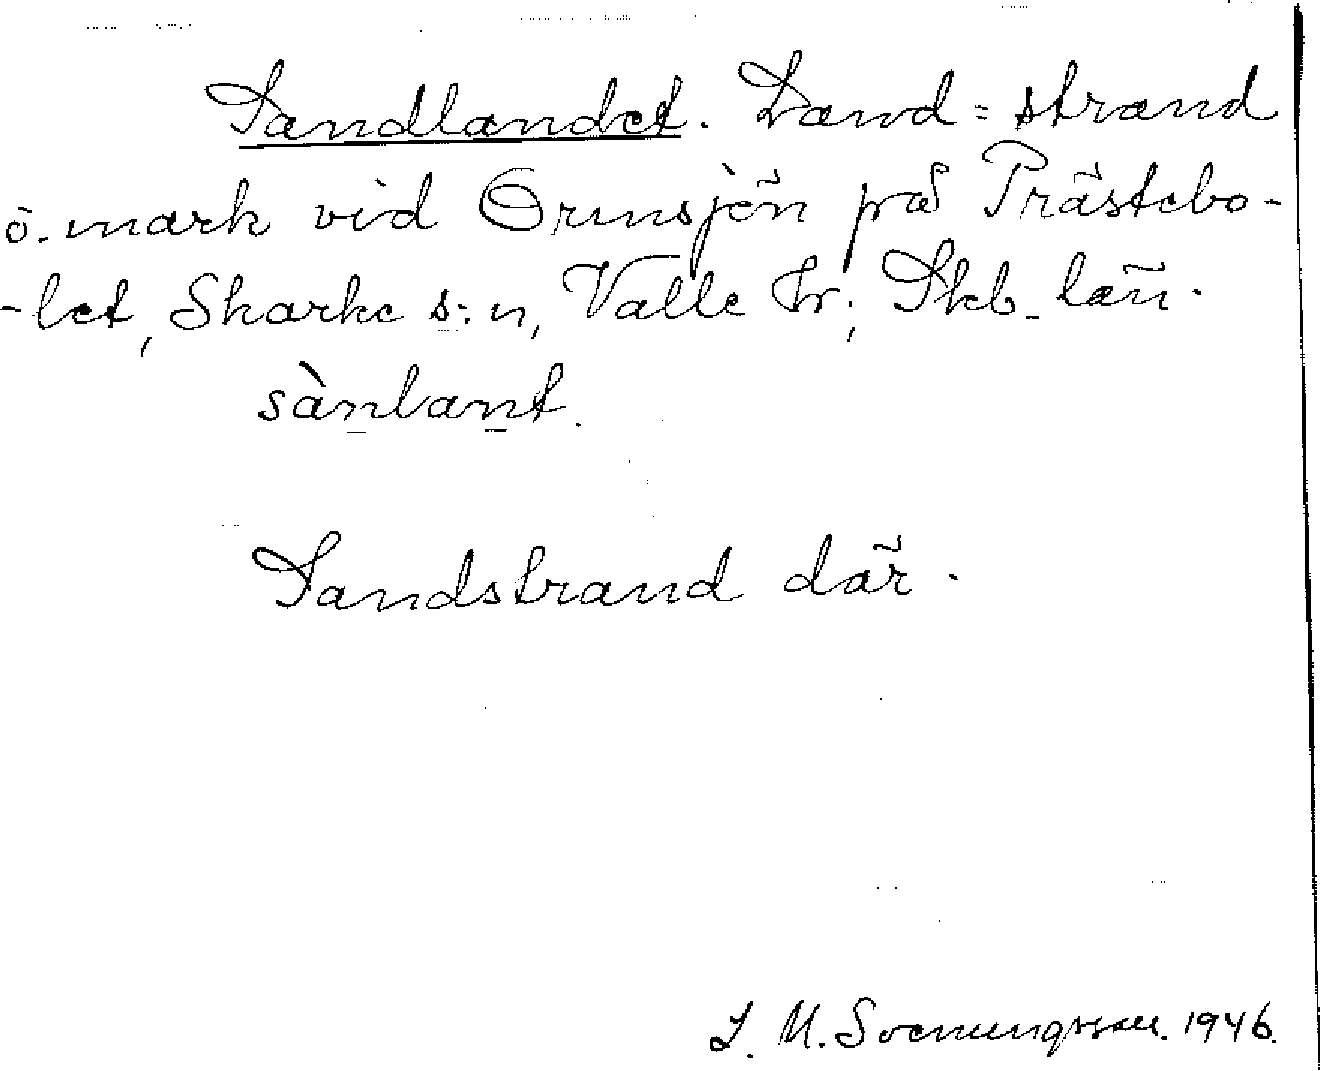 Sandlandet. Land = strand
o. mark vid Ormsjön på Prästebo-
-let, Skarke s:n, Valle hr; Skb. län.
sànlant.
Sandstrand där.
S. M. Svenungsson. 1946.